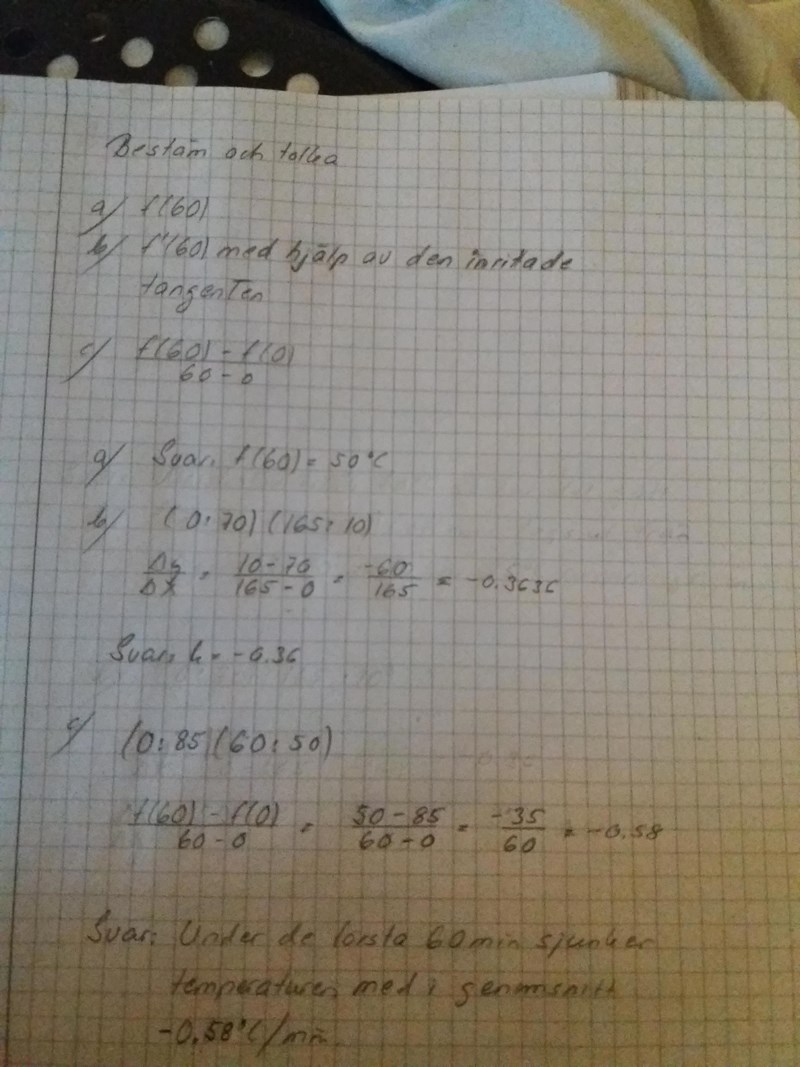 Bestäm och tolka
a) f(60)
b) f'(60) med hjälp av den inritade
tangenten
c) f(60) - f(0) / 60 - 0
a) Svar: f(60) = 50°C
b) (0:70) (165:10)
Δy/Δx = 10-70 / 165-0 = -60/165 = -0.3636
Svar: k = -0.36
c) (0:85 (60:50)
f(60) - f(0) / 60-0 = 50-85 / 60-0 = -35/60 = -0.58
Svar: Under de första 60 min sjunker
temperaturen med i genomsnitt
-0.58°C/min